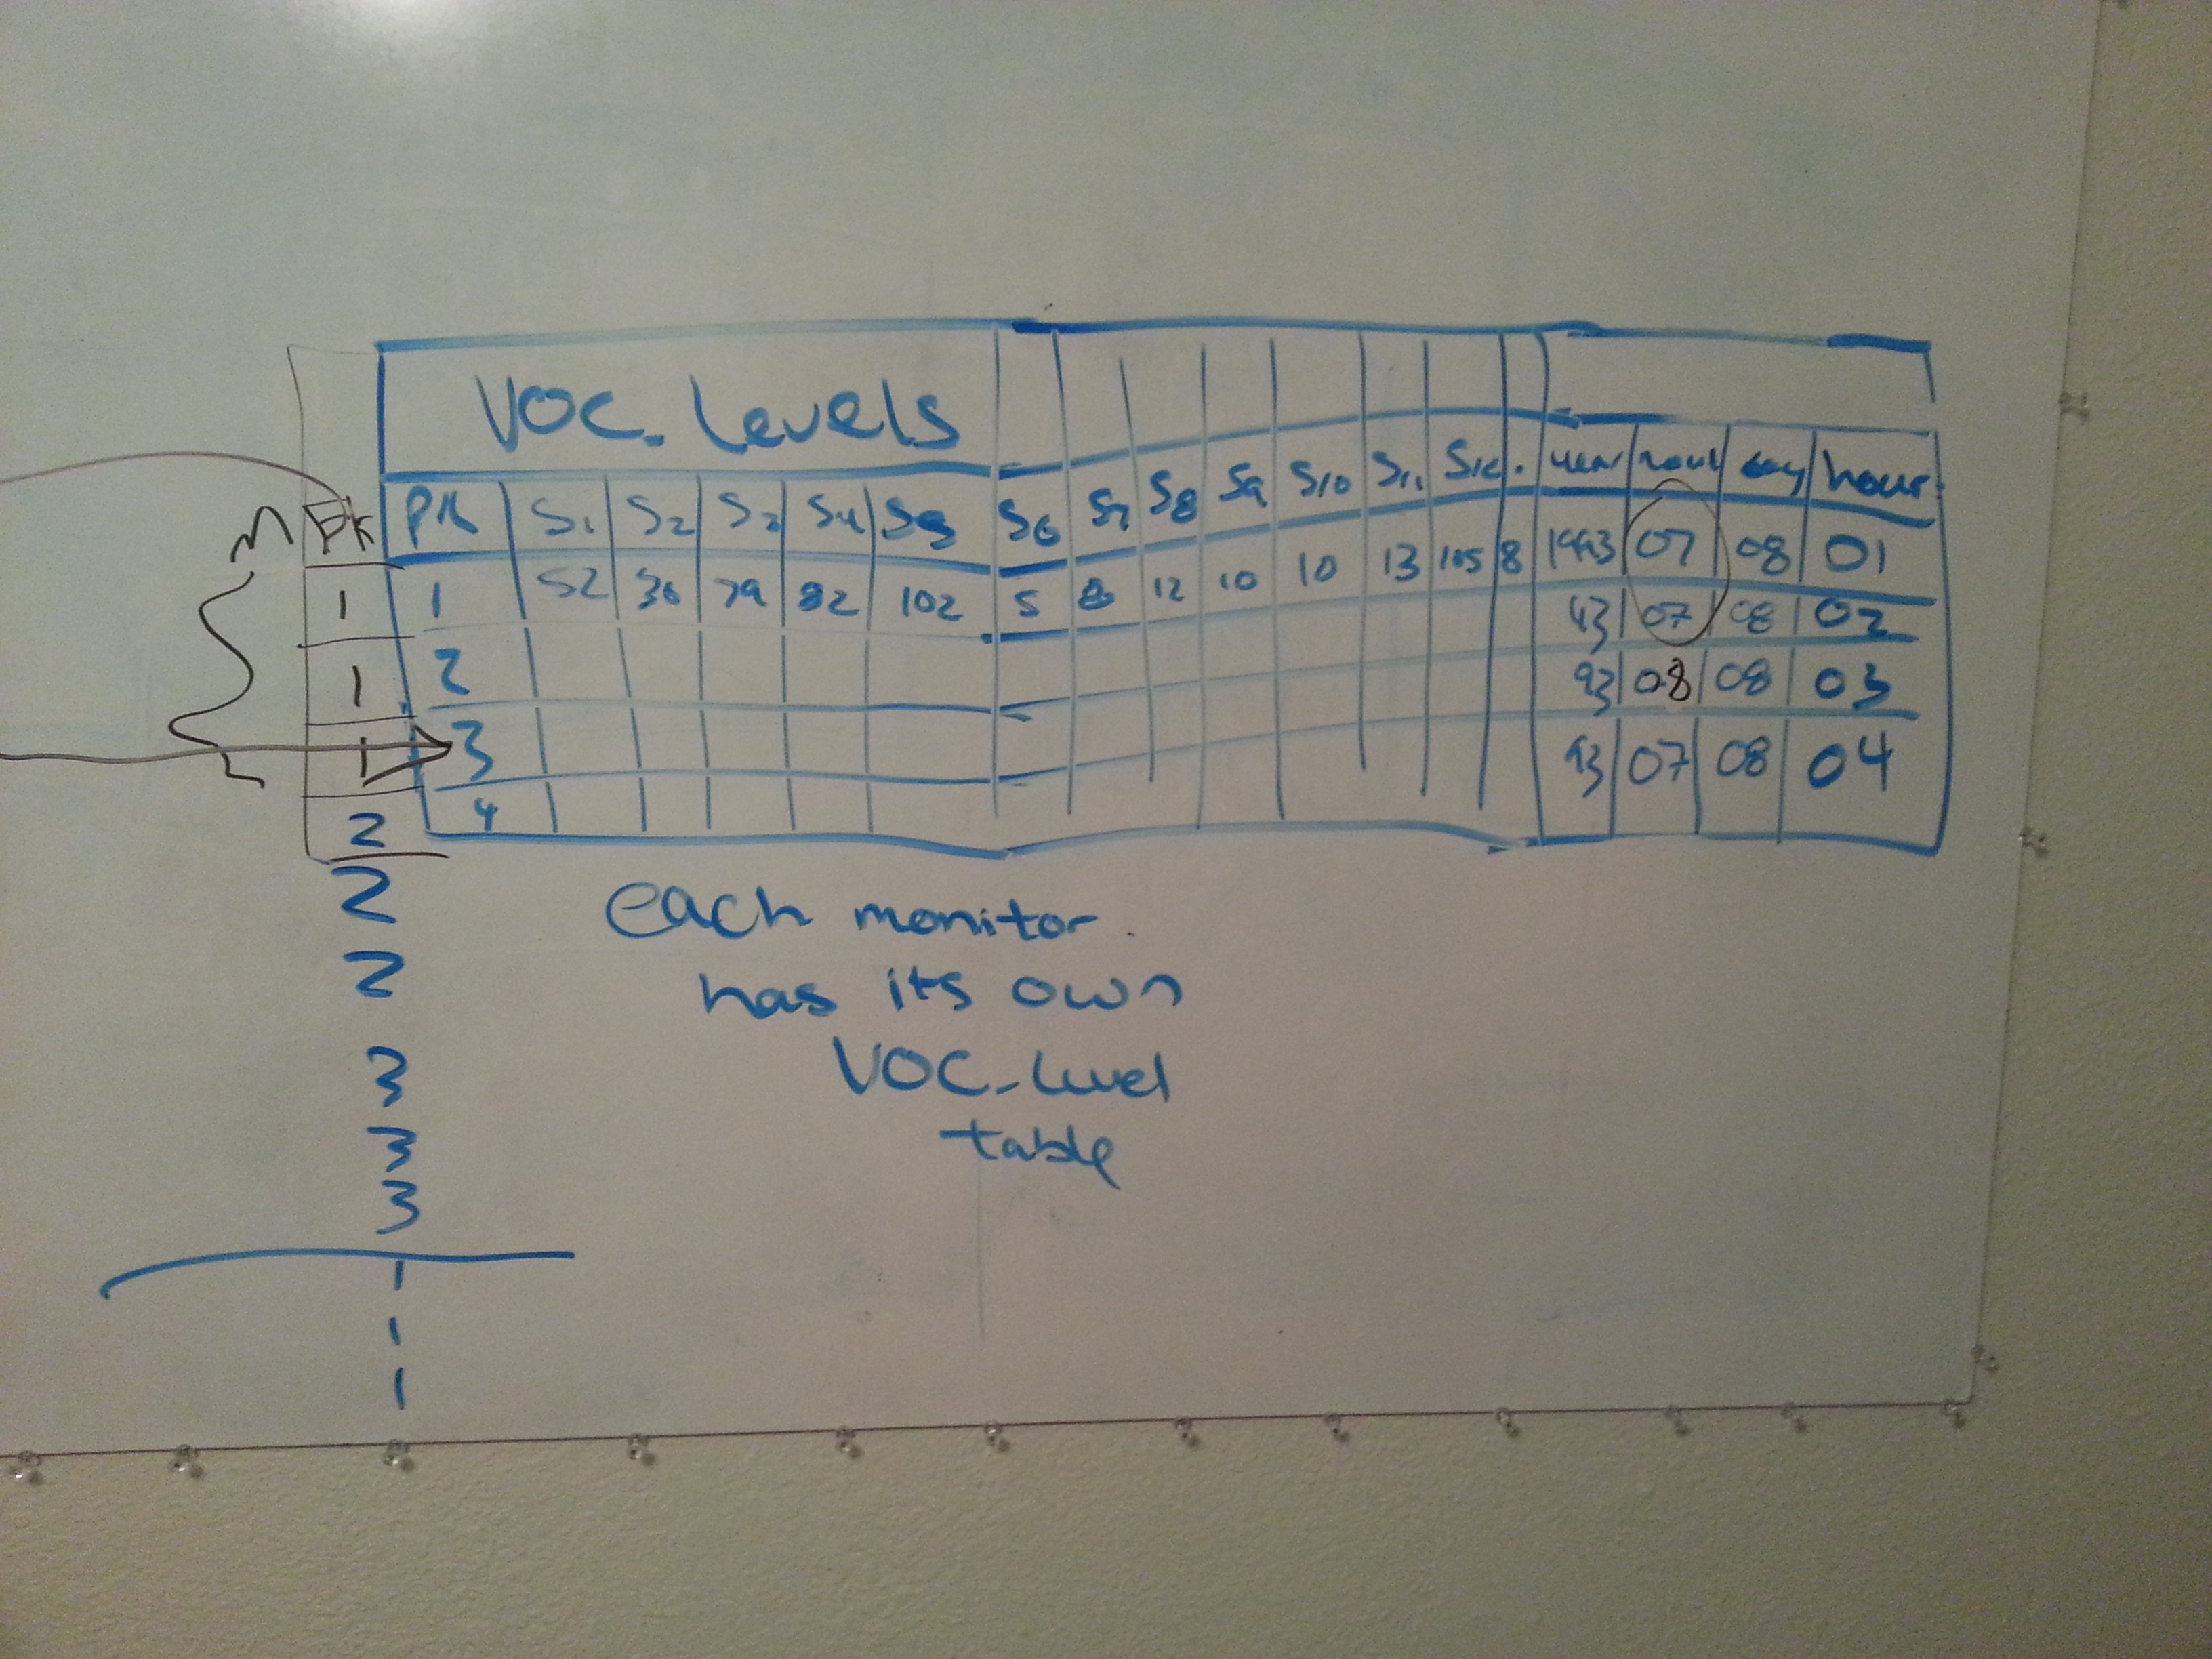 VOC_Levels
n FK PK S1 S2 S3 S4 S5 S6 S7 S8 S9 S10 S11 S12 . year day hour
1 1 52 30 79 82 102 5 8 12 10 10 13 105 8 1993 07 08 01
1 2 93 07 08 02
1 3 93 08 08 03
2 4 93 07 08 04
2
2
3
3
3
1
1
1
each monitor
has its own
VOC_Level
table